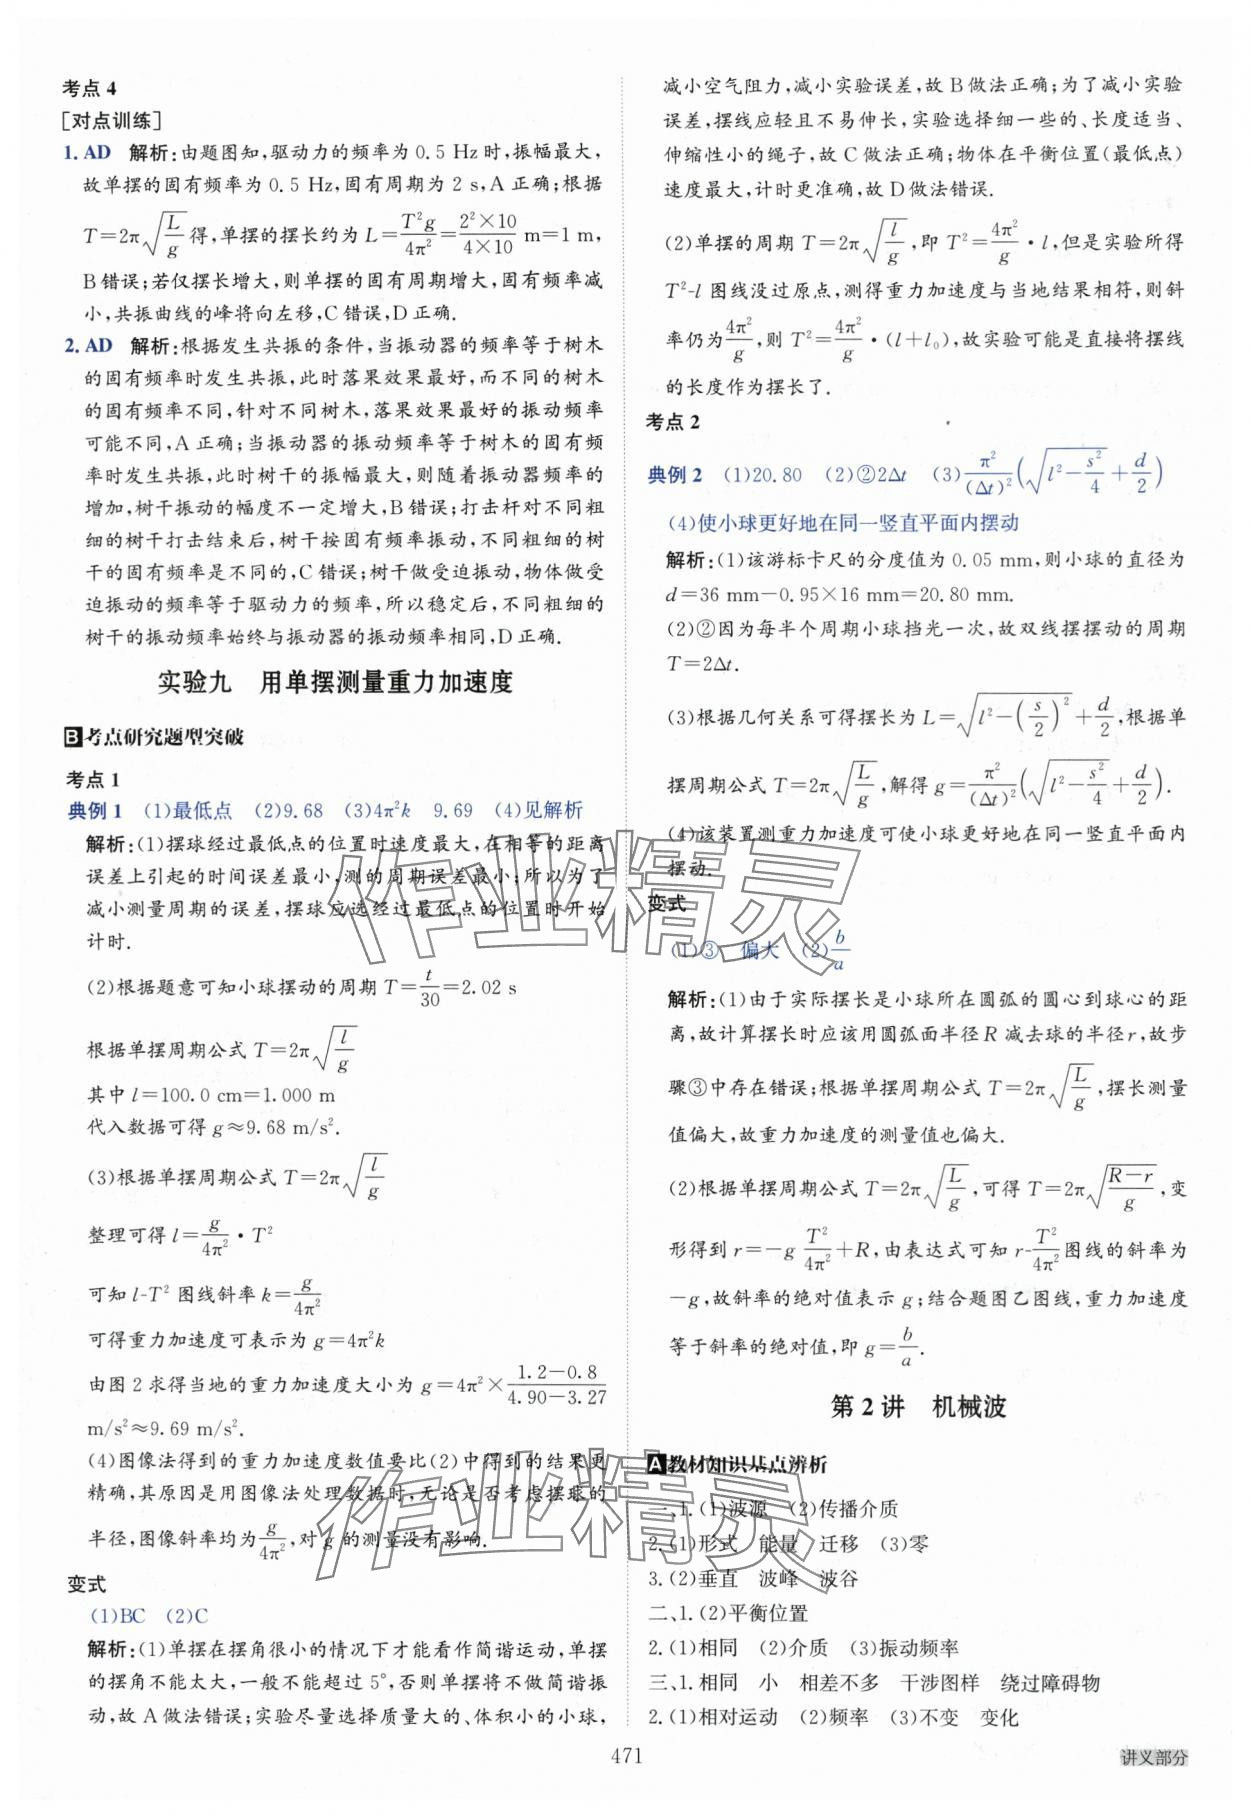 考点 4
[对点训练]
1. AD 解析:由题图知,驱动力的频率为 0.5 Hz时,振幅最大,
故单摆的固有频率为 0.5 Hz,固有周期为 2 s,A 正确;根据
T=2π√(L/g) 得,单摆的摆长约为 L=T²g/4π²=2²×10/4×10 m=1 m,
B错误;若仅摆长增大,则单摆的固有周期增大,固有频率减
小,共振曲线的峰将向左移,C错误,D正确.
2. AD 解析:根据发生共振的条件,当振动器的频率等于树木
的固有频率时发生共振,此时落果效果最好,而不同的树木
的固有频率不同,针对不同树木,落果效果最好的振动频率
可能不同,A正确;当振动器的振动频率等于树木的固有频
率时发生共振,此时树干的振幅最大,则随着振动器振动频率
增加,树干振动的幅度不一定增大,B错误;打击杆对不同粗
细的树干打击结束后,树干按固有频率振动,不同粗细的树
干的固有频率不同,C错误;树干做受迫振动,物体做受
迫振动的频率等于驱动力的频率,所以稳定后,不同粗细的
树干的振动频率始终与振动器的振动频率相同,D正确.
实验九 用单摆测量重力加速度
B 考点研究题型突破
考点 1
典例 1 (1)最低点 (2)9.68 (3)4π²k 9.69 (4)见解析
解析:(1)摆球经过最低点的位置时速度最大,在相等的距离
误差上引起的时间误差最小,测的周期误差最小;所以为了
减小测量周期的误差,摆球应选经过最低点的位置时开始
计时.
(2)根据题意可知小球摆动的周期 T=t/30=2.02 s
根据单摆周期公式 T=2π√(l/g)
其中 l=100.0 cm=1.000 m
代入数据可得 g≈9.68 m/s².
(3)根据单摆周期公式 T=2π√(l/g)
整理可得 l=g/4π²·T²
可知 l-T² 图线斜率 k=g/4π²
可得重力加速度可表示为 g=4π²k
由图 2 求得当地的重力加速度大小为 g=4π²×(1.2-0.8)/(4.90-3.27)
m/s²≈9.69 m/s².
(4)图像法得到的重力加速度数值要比(2)中得到的结果更
精确,其原因是用图像法处理数据时,无论是否考虑摆球的
半径,图像斜率均为 g/4π²,对 g 的测量没有影响.
变式
(1)BC (2)C
解析:(1)单摆在摆角很小的情况下才能看作简谐运动,单摆
的摆角不能太大,一般不能超过 5°,否则单摆将不做简谐振
动,故 A 做法错误;实验尽量选择质量大的、体积小的小球,
减小空气阻力,减小实验误差,故 B 做法正确;为了减小实验
误差,摆线应轻且不易伸长,实验选择细一些的、长度适当、
伸缩性小的绳子,故 C 做法正确;物体在平衡位置(最低点)
速度最大,计时更准确,故D做法错误.
(2)单摆的周期 T=2π√(l/g),即 T²=4π²/g·l,但是实验所得
T²-l 图线没过原点,测得重力加速度与当地结果相符,则斜
率仍为 4π²/g,则 T²=4π²/g·(l+l₀),故实验可能是直接将摆线
的长度作为摆长了.
考点 2
典例 2 (1)20.80 (2)②2Δt (3)π²/(Δt)²(√(l²-s²/4)+d/2)
(4)使小球更好地在同一竖直平面内摆动
解析:(1)该游标卡尺的分度值为 0.05 mm,则小球的直径为
d=36 mm-0.95×16 mm=20.80 mm.
(2)②因为每半个周期小球挡光一次,故双线摆摆动的周期
T=2Δt.
(3)根据几何关系可得摆长为 L=√(l²-(s/2)²)+d/2,根据单
摆周期公式 T=2π√(L/g),解得 g=π²/(Δt)²(√(l²-s²/4)+d/2).
(4)该装置测重力加速度可使小球更好地在同一竖直平面内
摆动.
变式
(1)③ 偏大 (2)b/a
解析:(1)由于实际摆长是小球所在圆弧的圆心到球心的距
离,故计算摆长时应该用圆弧面半径 R 减去球的半径r,故步
骤③中存在错误;根据单摆周期公式 T=2π√(L/g),摆长测量
值偏大,故重力加速度的测量值也偏大.
(2)根据单摆周期公式 T=2π√(L/g),可得 T=2π√((R-r)/g),变
形得到 r=-g T²/4π²+R,由表达式可知 r-T²/4π² 图线的斜率为
-g,故斜率的绝对值表示 g;结合题图乙图线,重力加速度
等于斜率的绝对值,即 g=b/a.
第 2 讲 机械波
A 教材知识基点辨析
一、1.(1)波源 (2)传播介质
2.(1)形式 能量 迁移 (3)零
3.(2)垂直 波峰 波谷
二、1.(2)平衡位置
2.(1)相同 (2)介质 (3)振动频率
三、1.相同 小 相差不多 干涉图样 绕过障碍物
2.(1)相对运动 (2)频率 (3)不变 变化
471
讲义部分
作业精灵
作业精灵